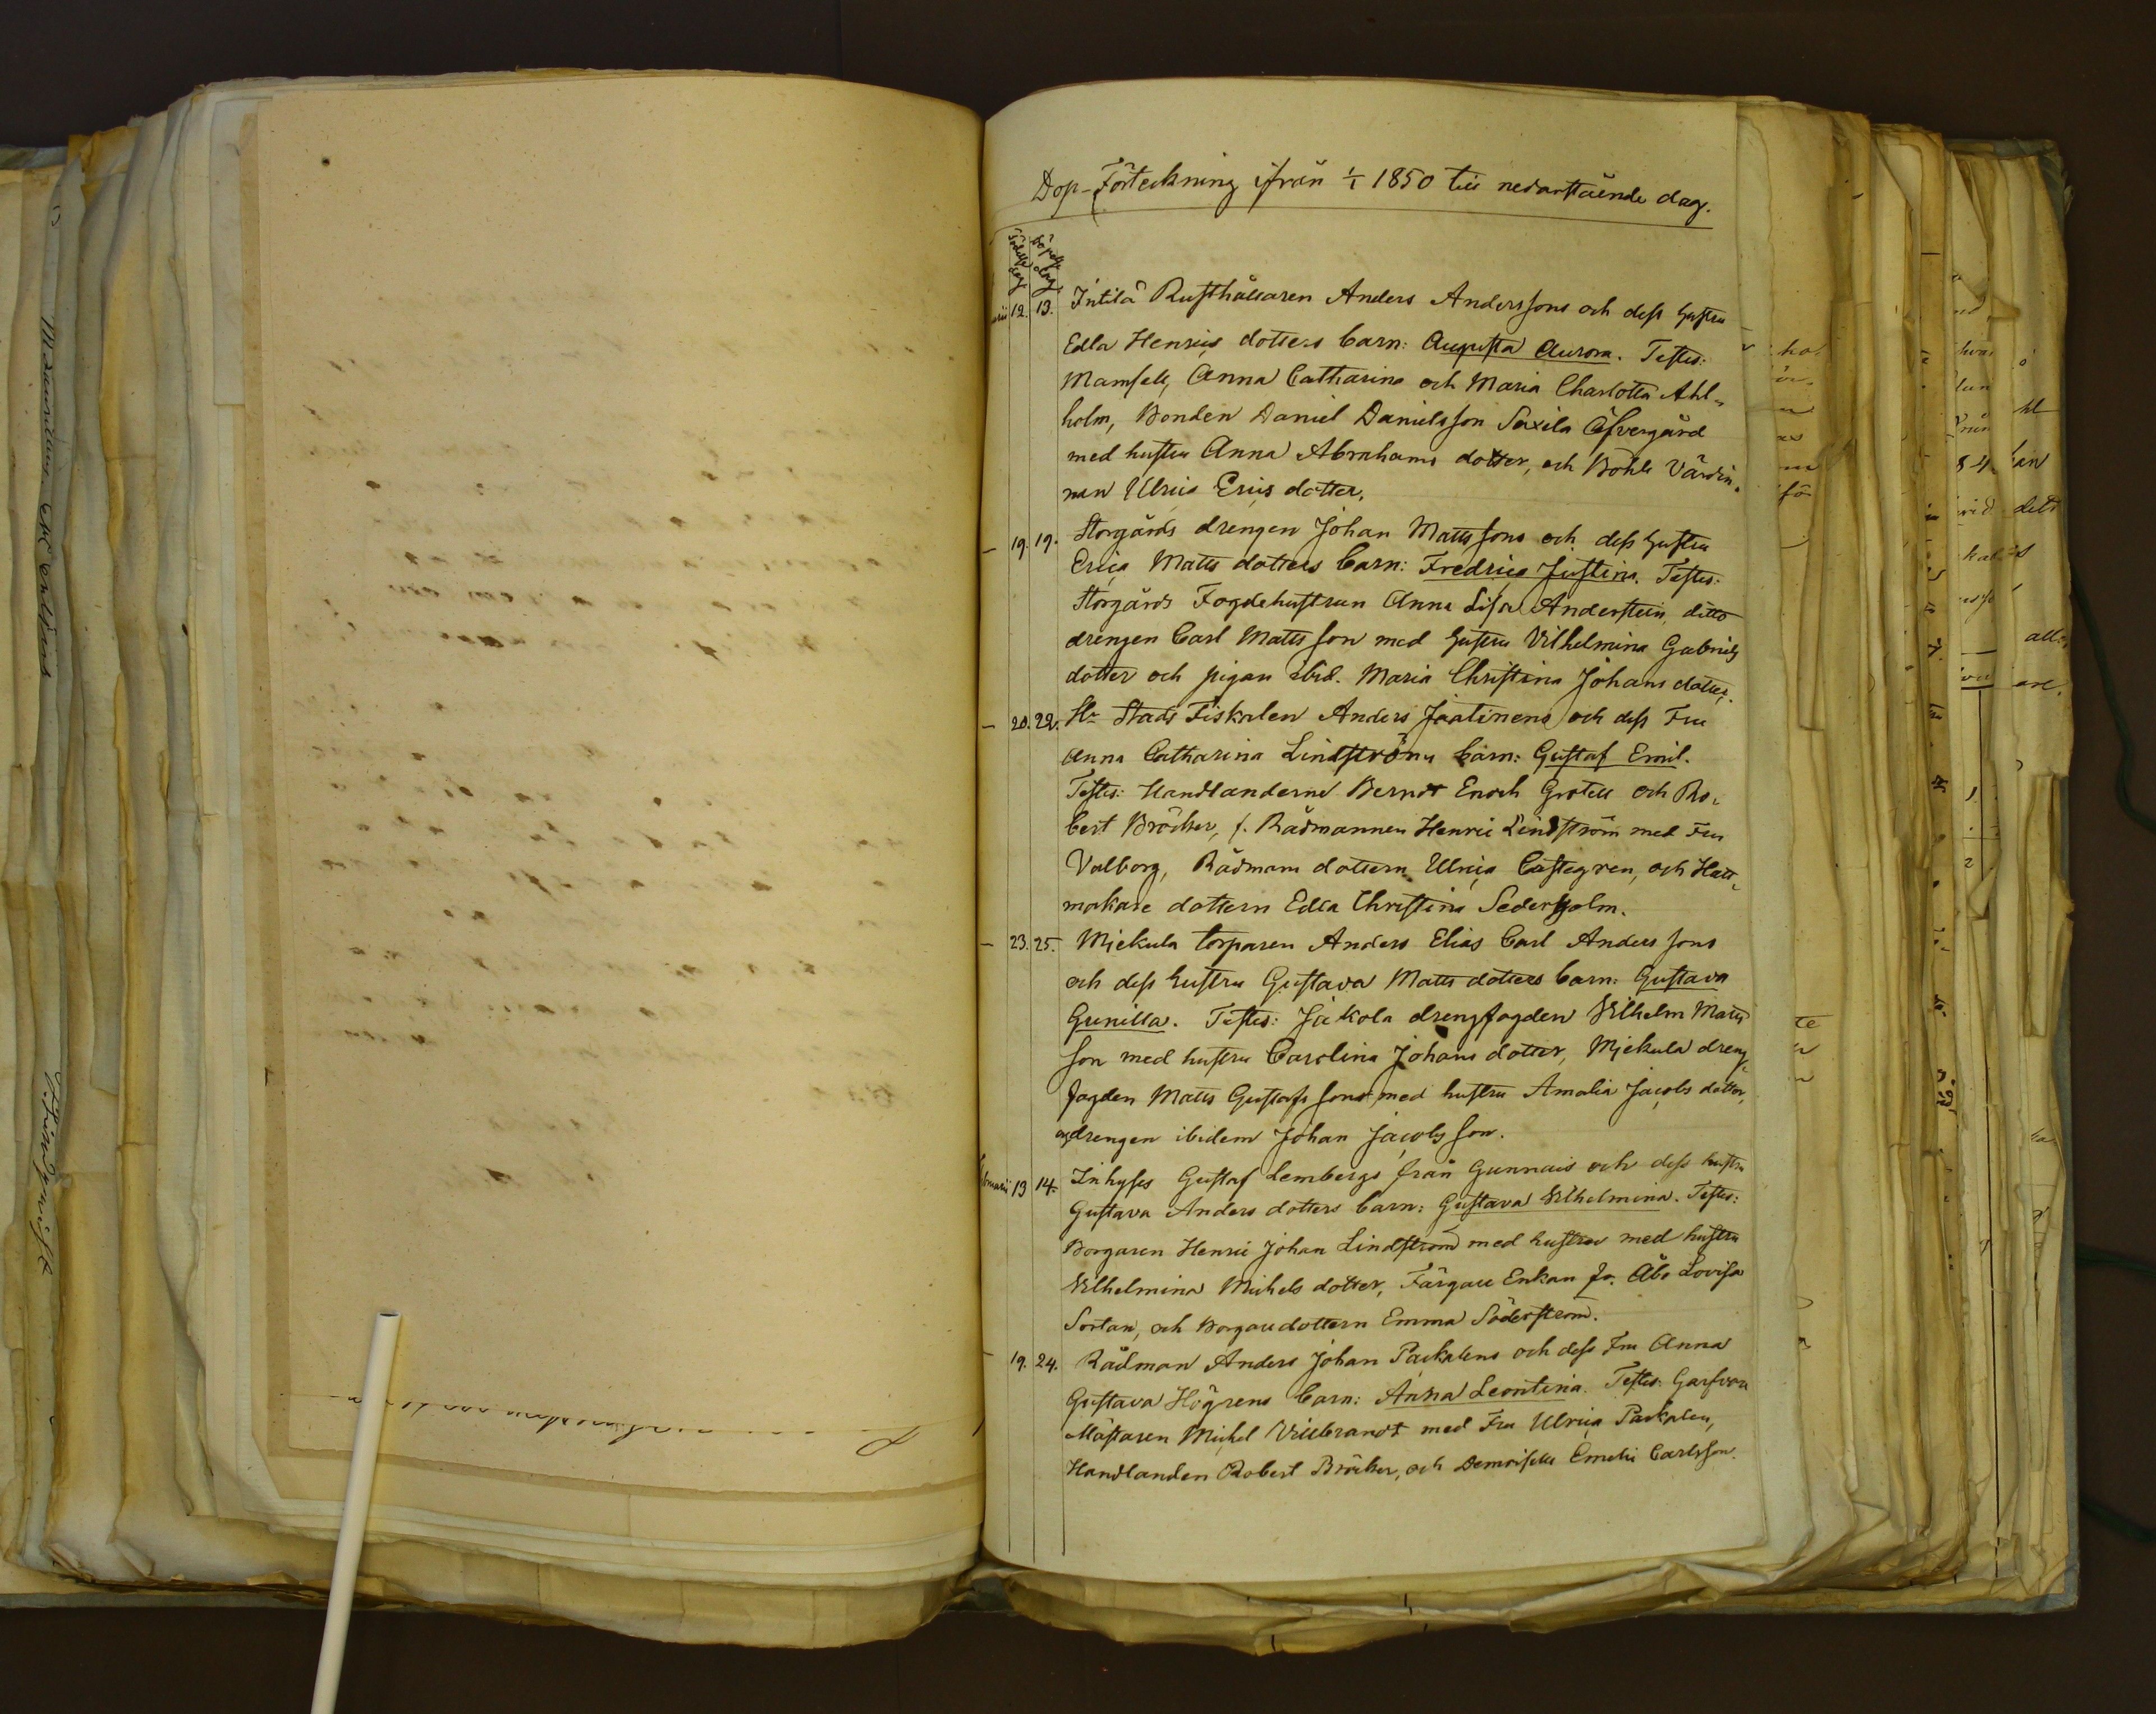 Dop-Förteckning ifrån 1/1 1850 till nedanstående dag.
födelse dag. döpelse dag.
12. 13. Intilä Rusthållaren Anders Anderssons och dess hustru
Edla Henrics dotters barn: Augusta Aurora. Testes:
Mamsell, Anna Catharina och Maria Charlotta Ahl-
holm, Bonden Daniel Danielsson Saxila Öfvergård
med hustru Anna Abrahams dotter, och Böhle Värdin-
nan Ulrica Erics dotter.
— 19. 19. Storgårds drengen Johan Mattssons och dess hustru
Erica Matts dotters barn: Fredrica Justina. Testes:
Storgårds Fogdehustrun Anna Lisa Anderstein, ditto
drengen Carl Mattsson med hustru Vilhelmina Gabriels
dotter och pigan ibid. Maria Christina Johans dotter.
— 20. 22. Hr Stads Fiskalen Anders Jaatinens och dess Fru
Anna Catharina Lindströms barn: Gustaf Emil.
Testes: Handlanderne Berndt Enoch Grotell och Ro-
bert Bröcker, f. Rådmannen Henric Lindström med Fru
Valborg, Rådmans dottern Ulrica Castegren, och Hatt-
makare dottern Edla Christina Sederholm.
— 23. 25. Mjekula torparen Anders Elias Carl Anderssons
och dess hustru Gustava Matts dotters barn: Gustava
Gunilla. Testes: Jäkola drengfogden Vilhelm Matts
son med hustru Carolina Johans dotter, Mjekula dreng-
fogden Matts Gustafssons med hustru Amalia Jacobs dotter,
och drengen ibidem Johan Jacobsson.
13 14. Inhyses Gustaf Lembergs från Gunnais och dess hustru
Gustava Anders dotters barn: Gustava Vilhelmina. Testes:
Borgaren Henric Johan Lindström med hustru med hustru
Vilhelmina Michels dotter, Färgare Enkan fr. Åbo Lovisa
Sortan, och Borgaredottern Emma Söderström.
— 19. 24. Rådman Anders Johan Packalens och dess Fru Anna
Gustava Högrens barn: Anna Leontina. Testes: Garfvare
Mästaren Michel Villebrandt med Fru Ulrica Packalen,
Handlanden Robert Bröcker, och Demoiselle Emelie Carlsson.